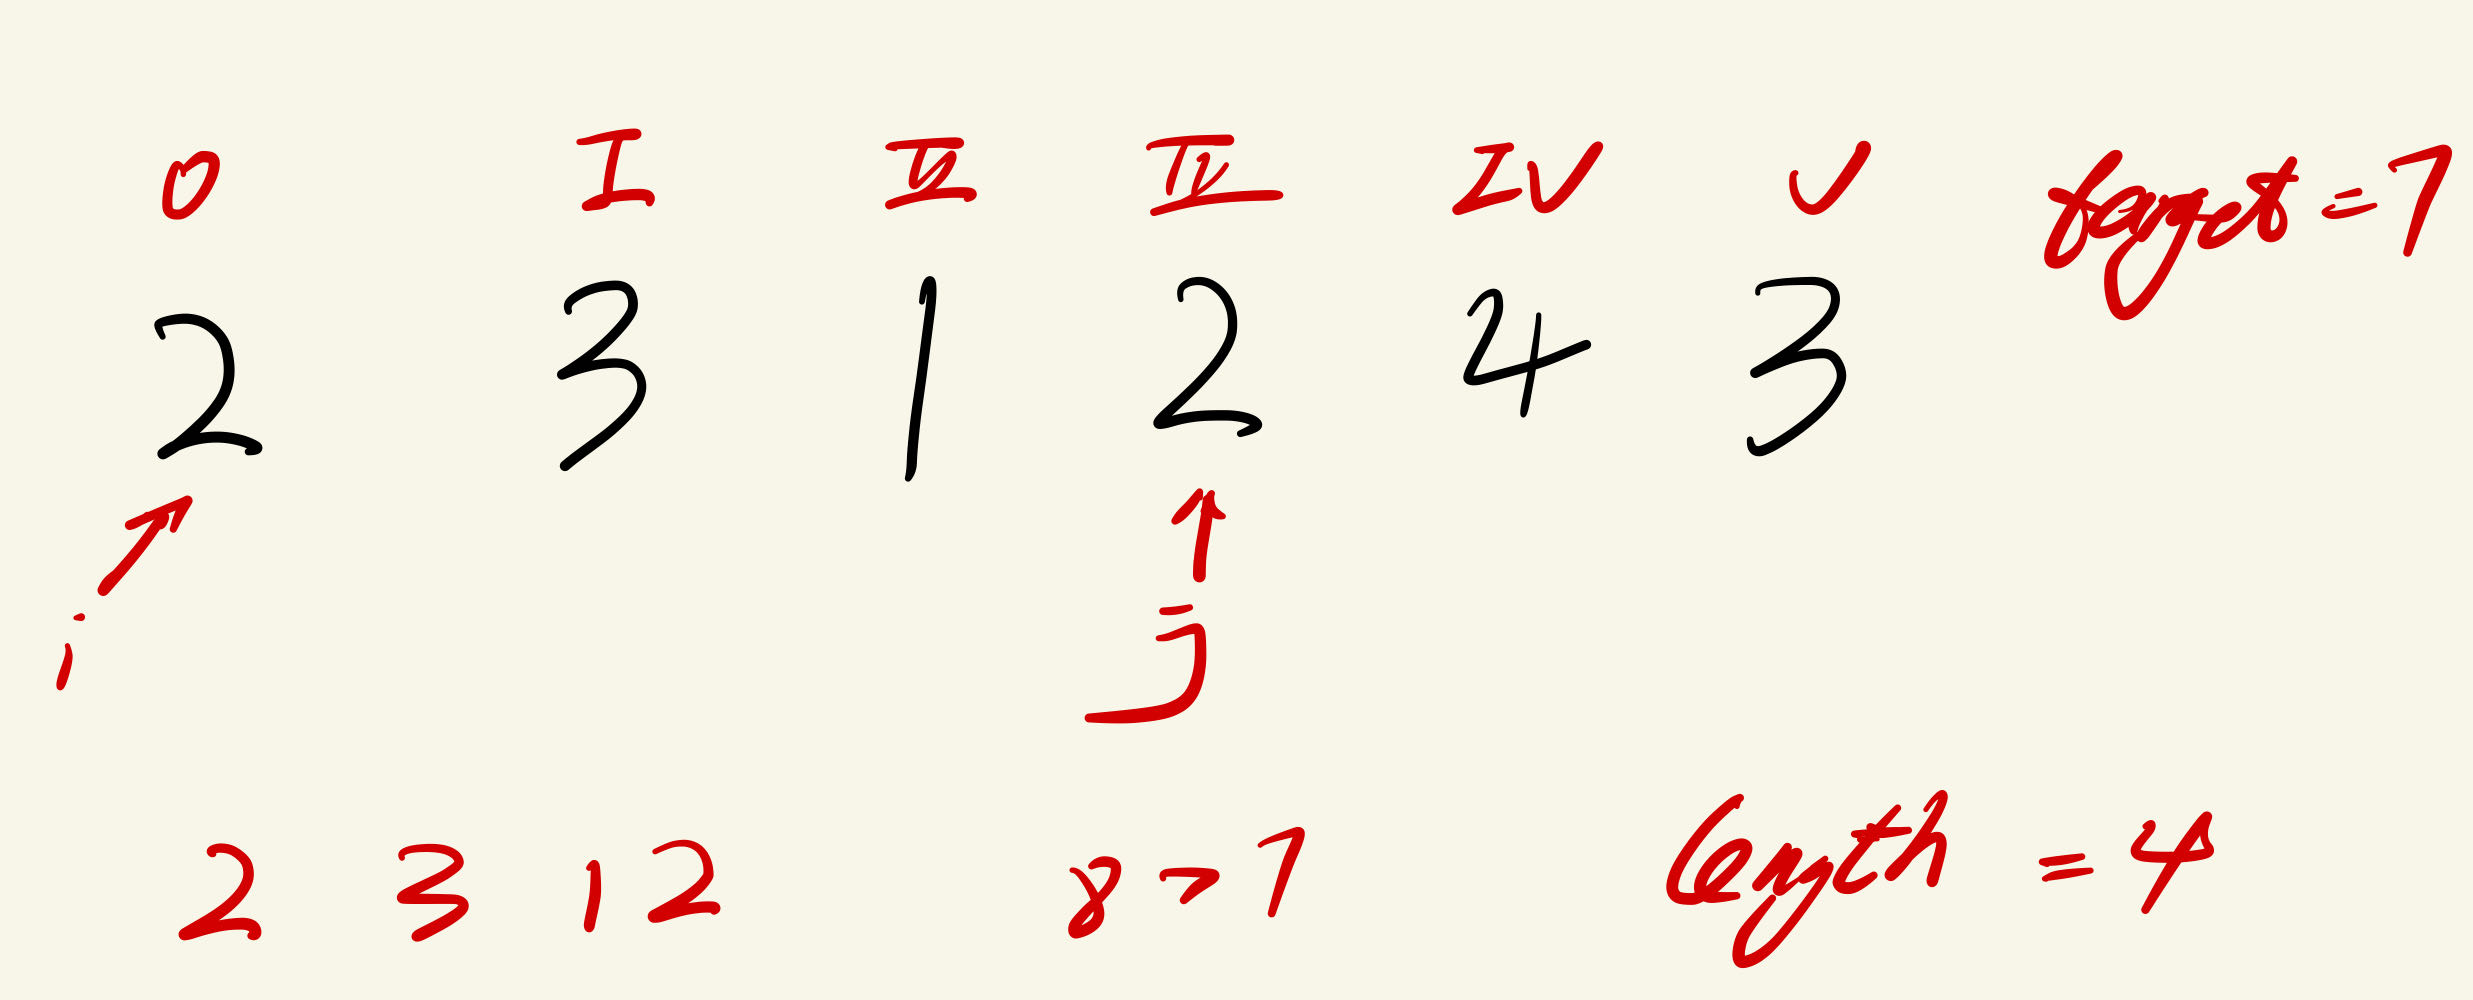 0 I II III IV V target = 7
2 3 1 2 4 3
i j
2 3 1 2 8 > 7 length = 4